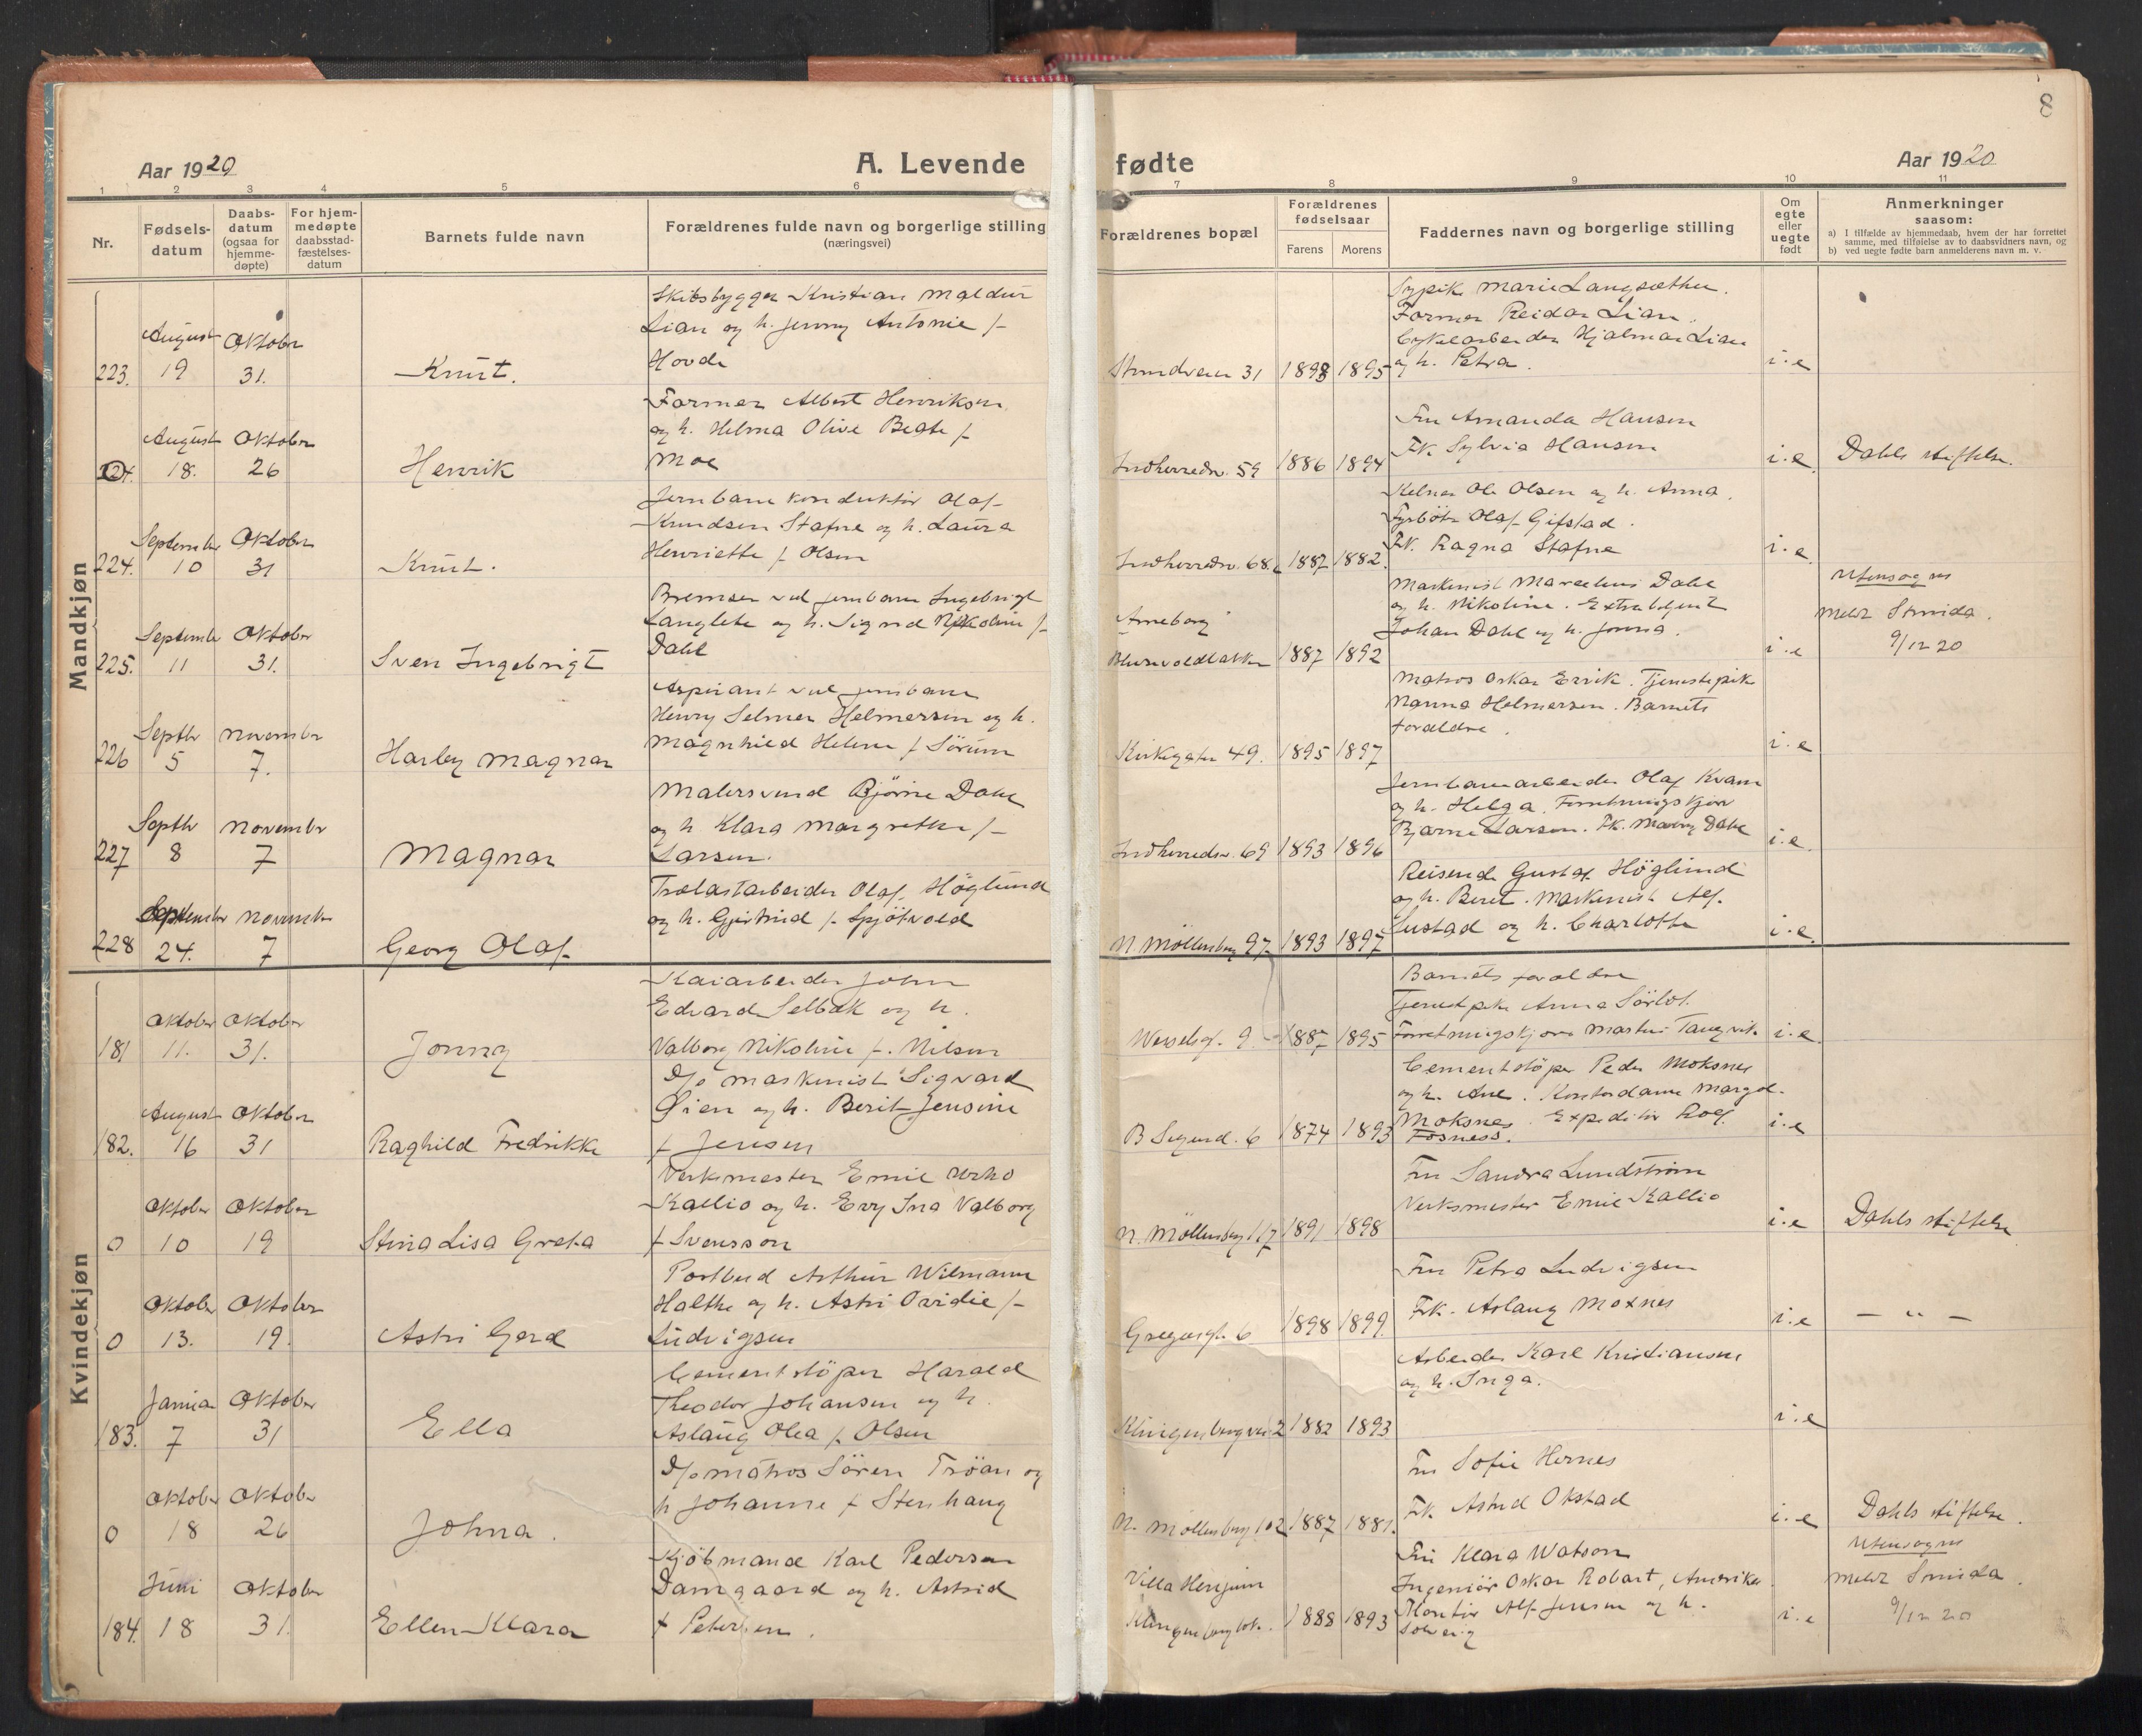 8
Aar 1920
A. Levende fødte
Aar 1920
1 2 3 4 5 6 7 8 9 10 11
Nr.
Fødsels-
datum
Daabs-
datum
(ogsaa for
hjemme-
døpte)
For hjem-
medøpte
daabsstad-
fæstelses-
datum
Barnets fulde navn
Forældrenes fulde navn og borgerlige stilling
(næringsvei)
Forældrenes bopæl
Forældrenes
fødselsaar
Farens Morens
Faddernes navn og borgerlige stilling
Om
egte
eller
uegte
født
Anmerkninger
saasom:
a) I tilfælde av hjemmedaab, hvem der har forrettet
samme, med tilføielse av to daabsvidners navn, og
b) ved uegte fødte barn anmelderens navn m. v.
Mandkjøn
223. August 19 Oktober 31.
Knut.
Skibsbygger Kristian
Lian og h. Jenny Antonie f.
Hovde
Strandveien 31 1893 1895
Sypik Marie Langsæther.
Former Reidar Lian.
Cykelarbeider Hjalmar Lian
og h. Petra.
i.e
August 18. Oktober 26
Henrik
Former Albert Henriksen
og h. Helma Olive Beate f.
Moe
Indherredsv. 59 1886 1894
Fru Amanda Hansen
Frk. Sylvia Hansen
i.e.
Dahls stiftelse.
224. September 10 Oktober 31
Knut.
Jernbanekonduktör Olaf
Knudsen Stafne og h. Laura
Henriette f. Olsen
Indherredsv. 68 1887 1882.
Kelner Ole Olsen og h. Anna.
Fyrböter Olaf Gifstad.
Frk. Ragna Stafne
i.e.
225. September 11 Oktober 31.
Sven Ingebrigt
Bremser ved jernbanen Ingebrigt
Langlete og h. Signed Nikoline f.
Dahl
Arneborg
1887 1892
Maskinist Marselius Dahl
og h. Nikoline. Extrabetjent
Johan Dahl og h. Jonna.
i.e
Utensogns
Meldt Strinda.
9/12 20
226 Septbr 5 November 7.
Harley Magnar
Aspirant ved jernbanen
Henry Selmer Helmersen og h.
Magnhild Helene f. Sörum
Kirkegaten 49. 1895 1897
Matros Oskar Errik. Tjenestepike
Nanna Helmersen. Barnets
foraldre.
i.e
227 Septbr 8 November 7
Magnar
Malersvend Bjørne Dahl
og h Klara Margrethe f.
Larsen.
Indherredsv. 69 1893 1896
Jernbanearbeider Olaf Kvam
og h. Helga. Forretningskjører
Bjarne Larsen. Frk. Dahl
i.e.
228 September 24. November 7
Georg Olaf
Trælastarbeider Olaf Höglund
og h. Gjertrud f. Spjötvold
N Möllenberg 97 1893 1897
Reisende Gustaf Höglund
og h. Beret. Maskinist Alf
Sustad og h. Charlotte
i.e.
Kvindekjøn
181 Oktober 11. Oktober 31.
Jonny
Kaiarbeider John
Edvard Selbak og h.
Valborg Nikoline f. Nilsen
Wesselsgt. 9 1887 1895
Barnets foraldre
Tjenestpike Anna Sörlöt.
Forretningskjører Martin Tangvik
i.e.
182. August 16 Oktober 31
Raghild Fredrikke
D/s maskinist Sigvard
Øien og h. Berit Jensine
f Jensen
B Sigurd. 6 1874 1893
Cementstöper Peder Moksnes
og h. Ane. Kontordame Margot
Moksnes. Expeditör Roef
Fosness.
i.e
0 Oktober 10 Oktober 19
Stina Lisa Greta
Verksmester Emil Urho
Kallio og h. Evy Ina Valborg
f Svensson
N. Möllenberg 117 1891 1898
Fru Sandra Lundström
Verksmester Emil Kallio
i.e
Dahls stiftelse
0 Oktober 13. Oktober 19.
Astri Gerd
Postbud Arthur Wilmann
Halthe og h. Astri Ovidie f.
Ludvigsen
Gregusgt. 6 1898 1899.
Fru Petra Ludvigsen
Frk. Aslaug Moxnes
i.e
— " —
183. Januar 7 Oktober 31
Ella
Cementstöper Harald
Theodor Johansen og h.
Aslaug Olea f. Olsen
Klingenbergvei 2 1882 1893
Arbeider Karl Kristiansen
og h. Inga.
i.e
0 Oktober 18 Oktober 26
Johna.
D/s matros Sören Tröan og
h Johanne f Stenhaug
N. Möllenberg 102 1887 1881.
Fru Sofie Hernes
Frk. Astrid Okstad
i.e
Dahls stiftelse.
184. Juni 18 Oktober 31.
Ellen Klara
Kjöbmand Karl Pedersen
Damgaard og h. Astrid
f Petersen.
Villa Henjum
Klingenberglok. 1888 1893
Fru Klara Watson
Ingeniör Oskar Robart, Amerika.
Montör Alf Jensen og h.
Solveig
i.e
Utensogns
Meldt Strinda.
9/12 20